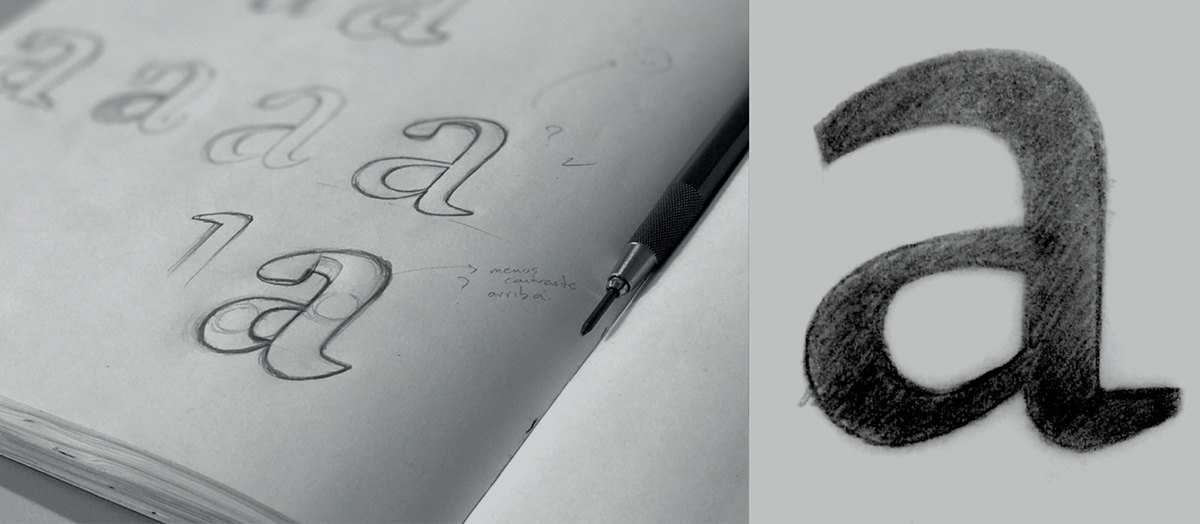 a
a a a a ?
1
a
menos
? contraste
arriba
a